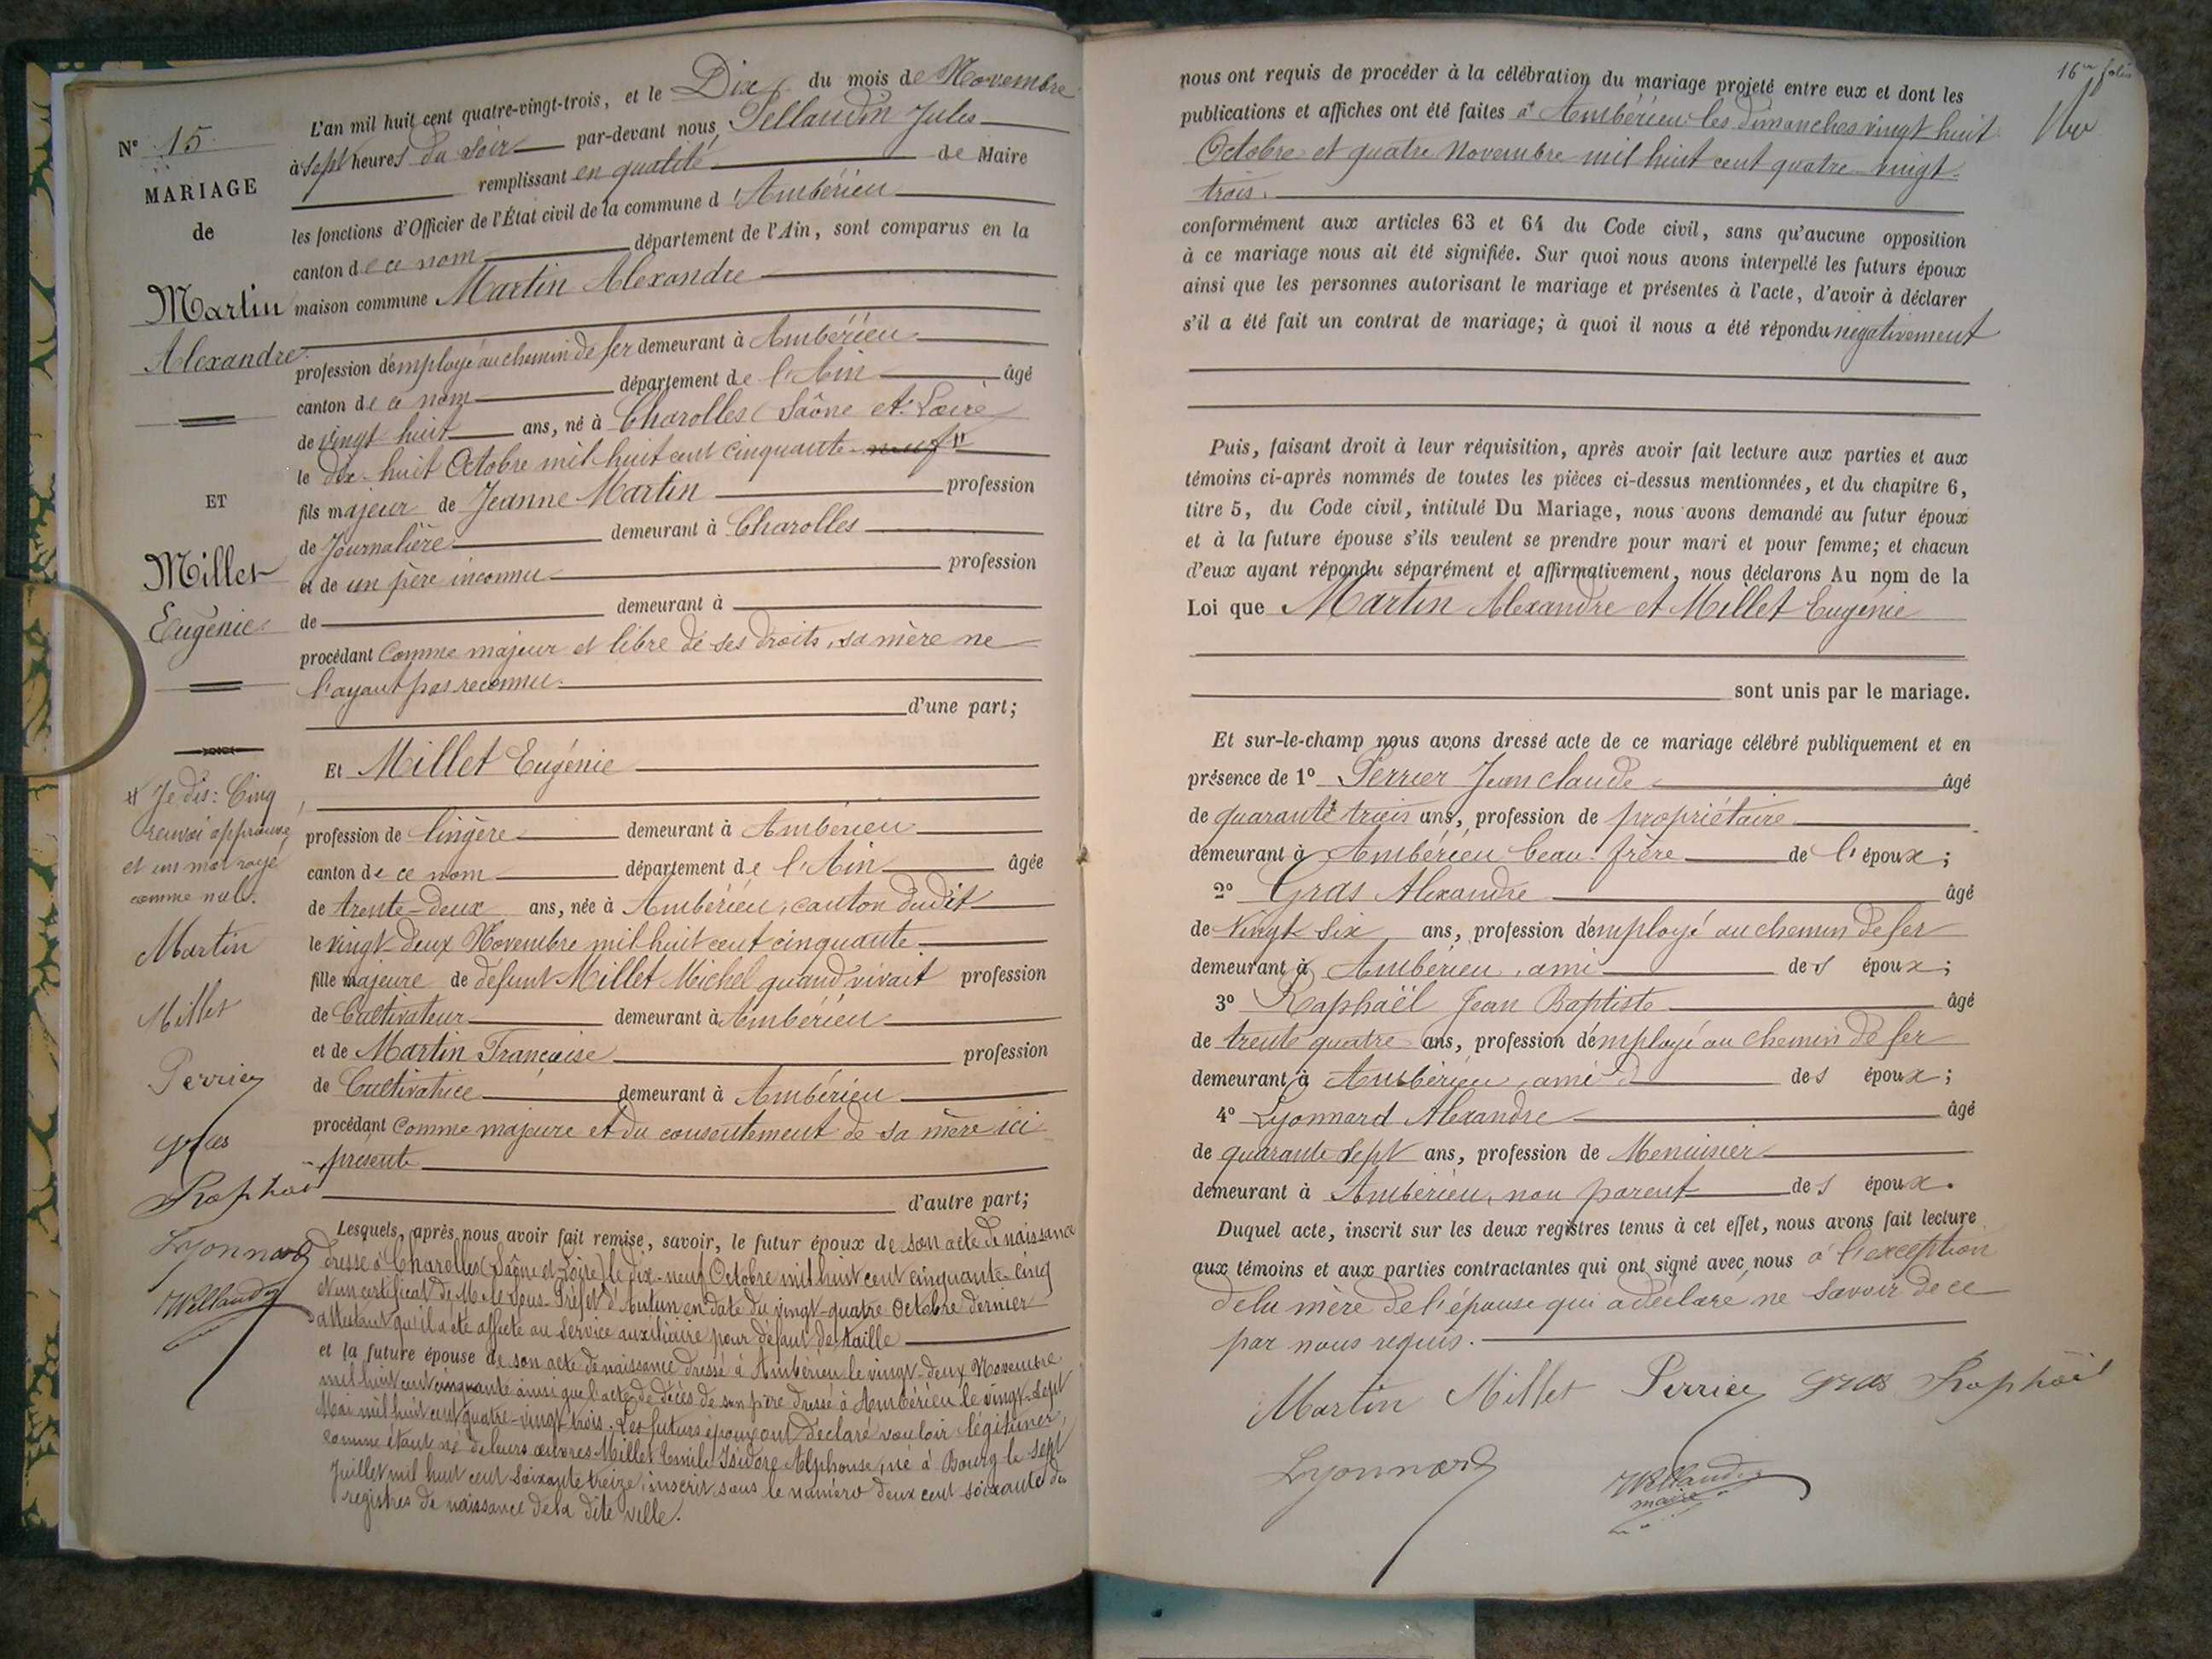 N° 15
MARIAGE
de
Martin
Alexandre
ET
Millet
Eugénie
Je dis: Cinq
renvoi approuvé
et un mot rayé
comme nul.
Martin
Millet
Perrier
gras
Raphaël
Lyonnard
L'an mil huit cent quatre-vingt-trois, et le Dix du mois de Novembre
à sept heures du soir par-devant nous, Jules
remplissant en qualité de Maire
les fonctions d'Officier de l'État civil de la commune d'Ambérieu
canton de ce nom département de l'Ain, sont comparus en la
maison commune Martin Alexandre
profession d'employé au chemin de fer demeurant à Ambérieu
canton de ce nom département de l'Ain âgé
de vingt huit ans, né à Charolles (Saône et Loire
le dix-huit Octobre mil huit cent cinquante neuf
fils majeur de Jeanne Martin profession
de Journalière demeurant à Charolles
et de un père inconnu profession
de demeurant à
procédant comme majeur et libre de ses droits, sa mère ne
l'ayant pas reconnu.
d'une part;
Et Millet Eugénie
profession de lingère demeurant à Ambérieu
canton de ce nom département de l'Ain âgée
de trente-deux ans, née à Ambérieu, canton dudit
le vingt deux Novembre mil huit cent cinquante
fille majeure de défunt Millet Michel quand vivait profession
de Cultivateur demeurant à Ambérieu
et de Martin Françoise profession
de Cultivatrice demeurant à Ambérieu
procédant comme majeure et du consentement de sa mère ici
présente
d'autre part;
Lesquels, après nous avoir fait remise, savoir, le futur époux de son acte de naissance
dressé à Charolles (Saône et Loire) le dix-neuf Octobre mil huit cent cinquante-cinq
et un certificat de M. le Sous-Préfet d'Autun en date du vingt-quatre Octobre dernier
attestant qu'il a été affecté au service auxiliaire pour défaut de taille
et la future épouse de son acte de naissance dressé à Ambérieu le vingt-deux Novembre
mil huit cent cinquante ainsi que l'acte de décès de son père dressé à Ambérieu le vingt-sept
Mai mil huit cent quatre-vingt-trois. Les futurs époux ont déclaré vouloir légitimer,
comme étant né de leurs œuvres Millet Emile Isidore Alphonse, né à Bourg le sept
Juillet mil huit cent soixante treize, inscrit sous le numéro deux cent soixante des
registres de naissance de la dite ville.
16me folio
nous ont requis de procéder à la célébration du mariage projeté entre eux et dont les
publications et affiches ont été faites à Ambérieu les dimanches vingt huit
Octobre et quatre Novembre mil huit cent quatre-vingt-
trois.
conformément aux articles 63 et 64 du Code civil, sans qu'aucune opposition
à ce mariage nous ait été signifiée. Sur quoi nous avons interpellé les futurs époux
ainsi que les personnes autorisant le mariage et présentes à l'acte, d'avoir à déclarer
s'il a été fait un contrat de mariage; à quoi il nous a été répondu négativement
Puis, faisant droit à leur réquisition, après avoir fait lecture aux parties et aux
témoins ci-après nommés de toutes les pièces ci-dessus mentionnées, et du chapitre 6,
titre 5, du Code civil, intitulé Du Mariage, nous avons demandé au futur époux
et à la future épouse s'ils veulent se prendre pour mari et pour femme; et chacun
d'eux ayant répondu séparément et affirmativement, nous déclarons Au nom de la
Loi que Martin Alexandre et Millet Eugénie
sont unis par le mariage.
Et sur-le-champ nous avons dressé acte de ce mariage célébré publiquement et en
présence de 1° Perrier Jean claude âgé
de quarante trois ans, profession de propriétaire
demeurant à Ambérieu beau-frère de l'époux;
2° Gras Alexandre âgé
de vingt six ans, profession d'employé au chemin de fer
demeurant à Ambérieu, ami des époux;
3° Raphaël Jean Baptiste âgé
de trente quatre ans, profession d'employé au chemin de fer
demeurant à Ambérieu, ami des époux;
4° Lyonnard Alexandre âgé
de quarante sept ans, profession de Menuisier
demeurant à Ambérieu, non parent des époux.
Duquel acte, inscrit sur les deux registres tenus à cet effet, nous avons fait lecture
aux témoins et aux parties contractantes qui ont signé avec nous à l'exception
de la mère de l'épouse qui a déclaré ne savoir de ce
par nous requis.
Martin Millet Perrier gras Raphaël
Lyonnard
maire